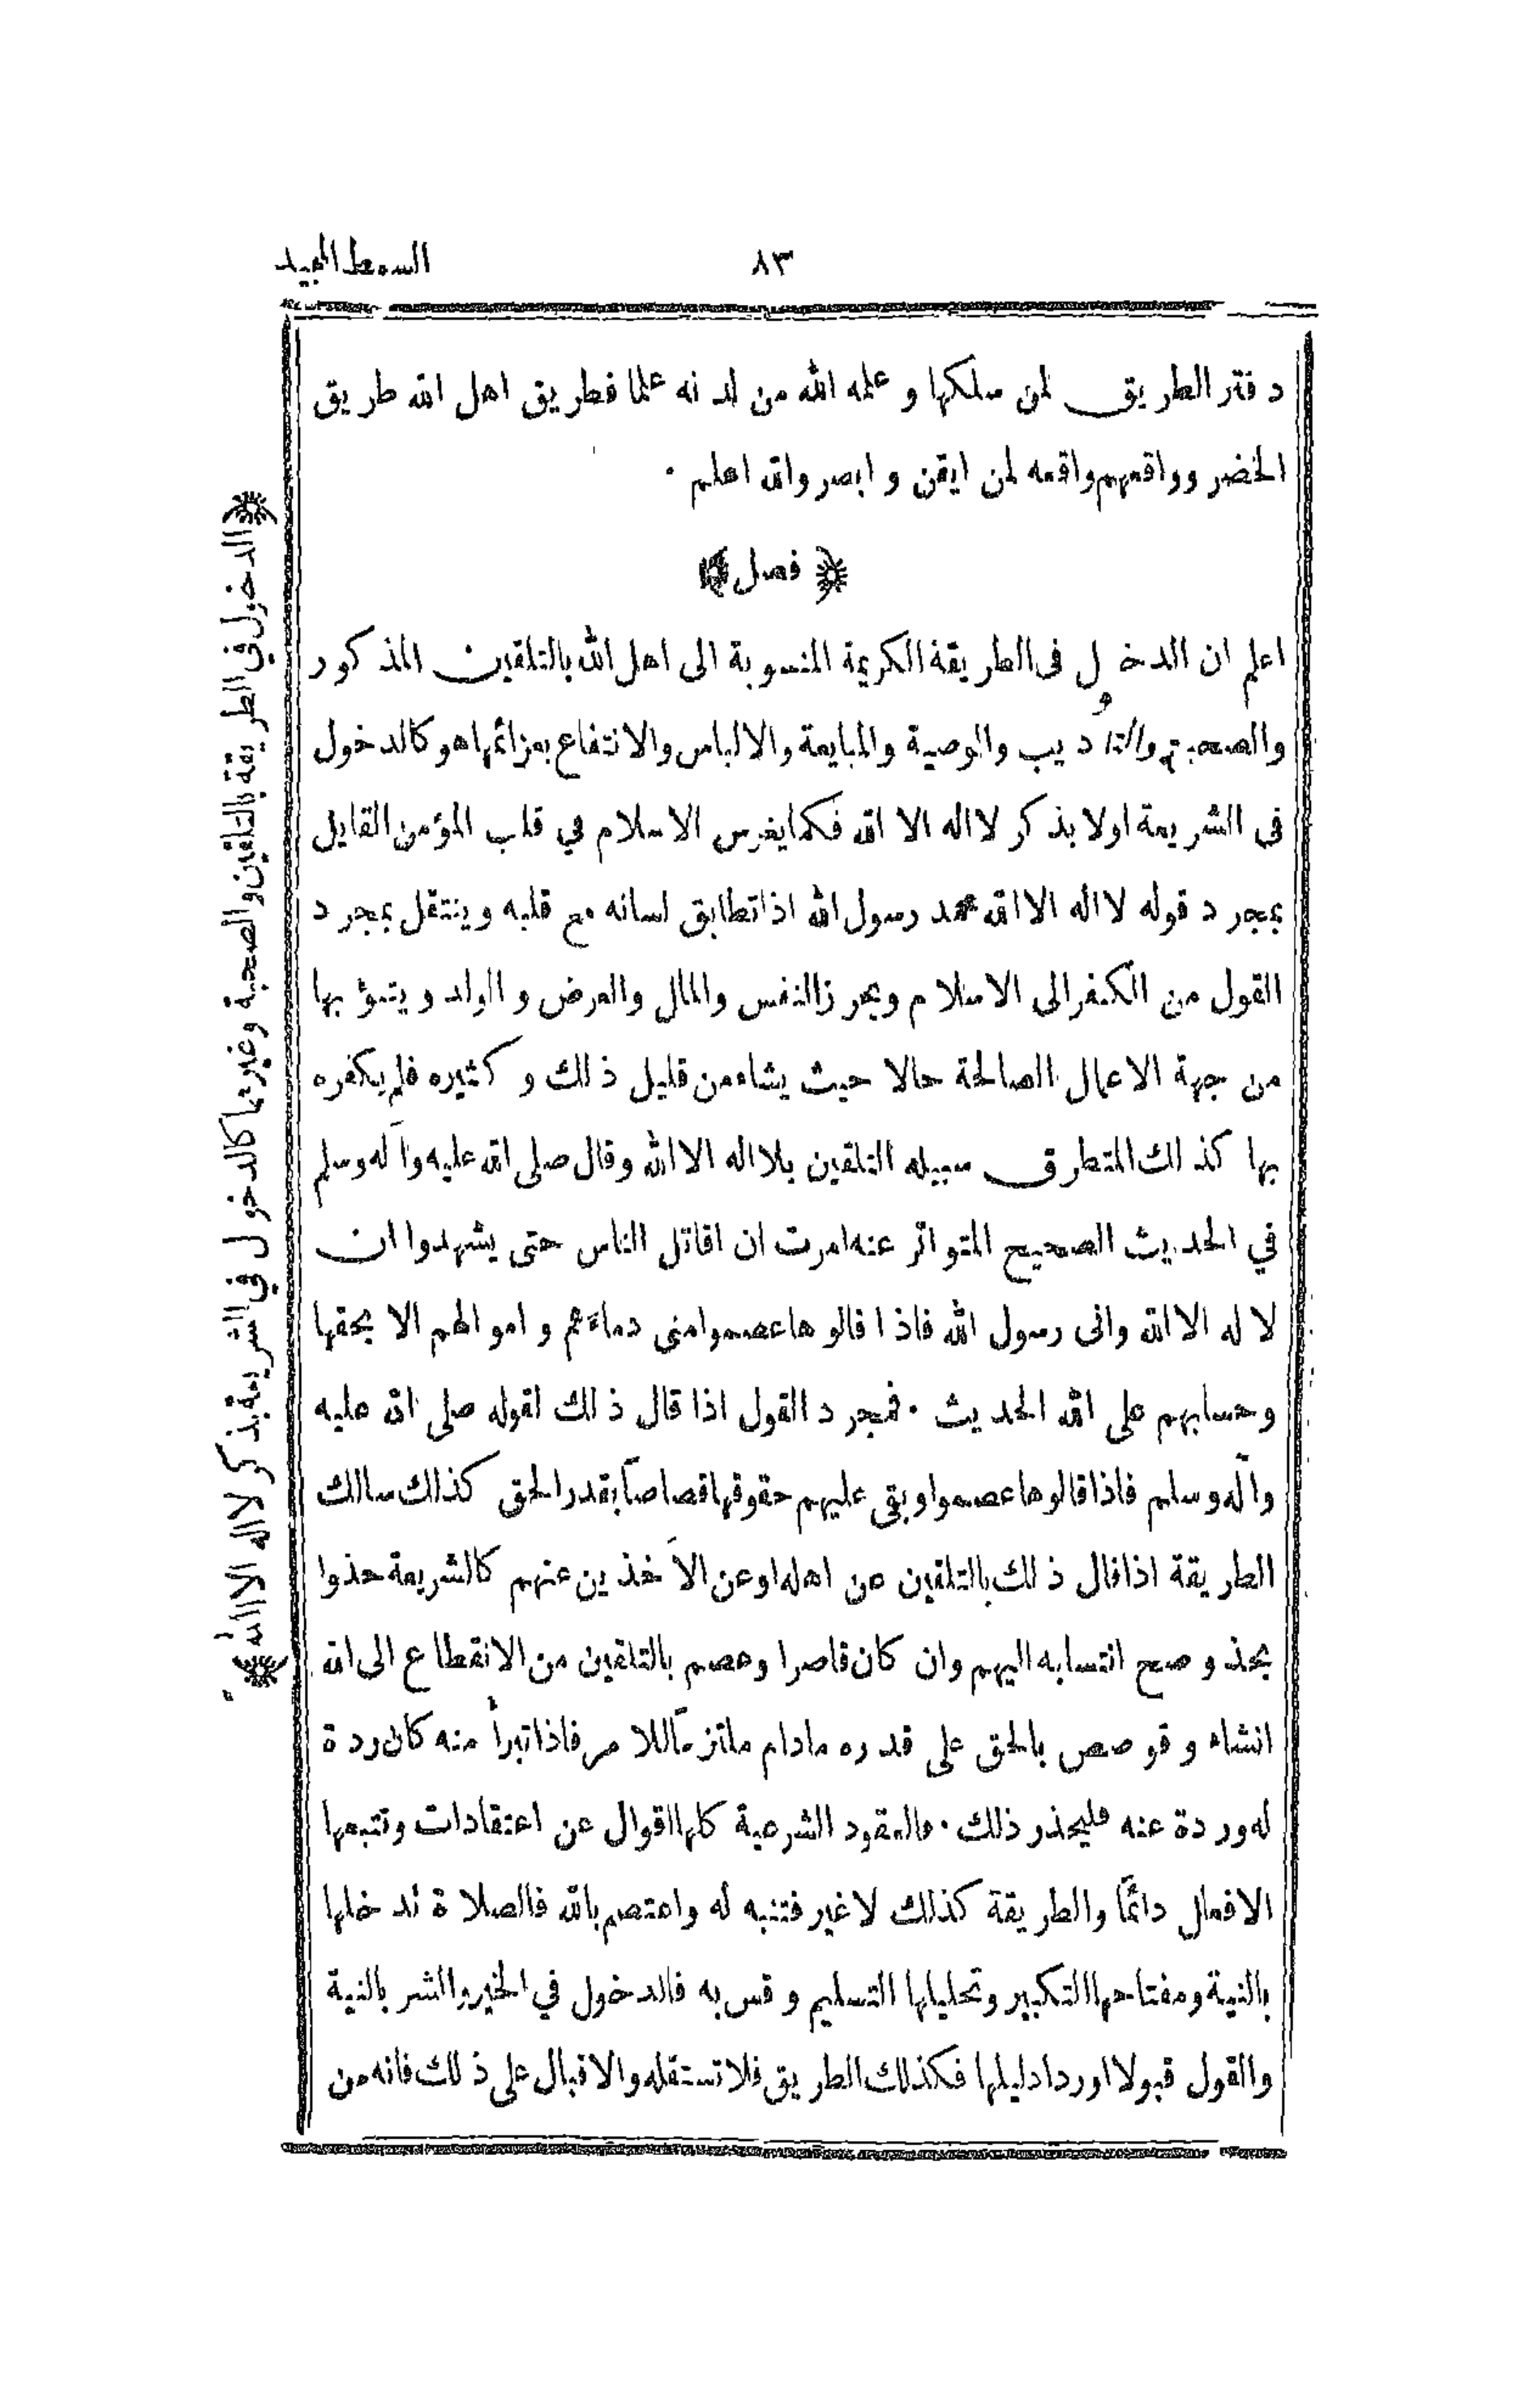 السمط المجيد
٨٣
دفتر الطريق لمن سلكها و علمه الله من لدنه علما فطريق اهل الله طريق
الخضر وواقعهم واقعه لمن ايقن و ابصر والله اعلم ٠
﴿ فصل ﴾
اعلم ان الدخول فى الطريقة الكريمة المنسوبة الى اهل الله بالتلقين المذكور
والصحبة والتأديب والوصية والمبايعة والالباس والانتفاع بعزائمها هو كالدخول
فى الشريعة اولا بذكر لا اله الا الله فكما يغرس الاسلام في قلب المؤمن القايل
بمجرد قوله لا اله الا الله محمد رسول الله اذا تطابق لسانه مع قلبه وينتقل بمجرد
القول من الكفر الى الاسلام ويحرز النفس والمال والعرض و الولد و يتبؤ بها
من جهة الاعمال الصالحة حالا حيث يشاء من قليل ذلك و كثيره فلم يكفره
بها كذلك المتطرق سبيله التلقين بلا اله الا الله وقال صلى الله عليه وآله وسلم
في الحديث الصحيح المتواتر عنه امرت ان اقاتل الناس حتى يشهدوا ان
لا له الا الله وانى رسول الله فاذا قالوها عصموا منى دماءهم و اموالهم الا بحقها
وحسابهم على الله الحديث ٠ فمجرد القول اذا قال ذلك لقوله صلى الله عليه
وآله وسلم فاذا قالوها عصموا وبقى عليهم حقوقها قصاصاً بقدر الحق كذلك سالك
الطريقة اذا قال ذلك بالتلقين من اهله او عن الآخذين عنهم كالشريعة حذوا
بحذو وصح انتسابه اليهم وان كان قاصرا وعصم بالتلقين من الانقطاع الى الله
انشاء و قوصص بالحق على قدره مادام ملتزماً للامر فاذا تبرأ منه كان ردة
له وردة عنه فليحذر ذلك ٠ فالعقود الشرعية كلها اقوال عن اعتقادات وتتبعها
الافعال دائماً والطريقة كذلك لاغير فتنبه له واعتصم بالله فالصلاة تدخلها
بالنية ومفتاحها التكبير وتحليلها التسليم و قس به فالدخول في الخير والشر بالنية
والقول قبولا اوردا دليلها فكذلك الطريق فلا تستقله والاقبال على ذلك فانه من
﴿ الدخول في الطريقة بالتلقين والصحبة وغيرهما كالدخول في الشريعة بذكر لا اله الا الله ﴾